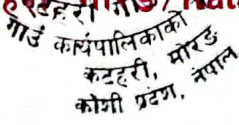 गाउँ कार्यपालिकाको
कटहरी, मोरङ
कोशी प्रदेश, नेपाल